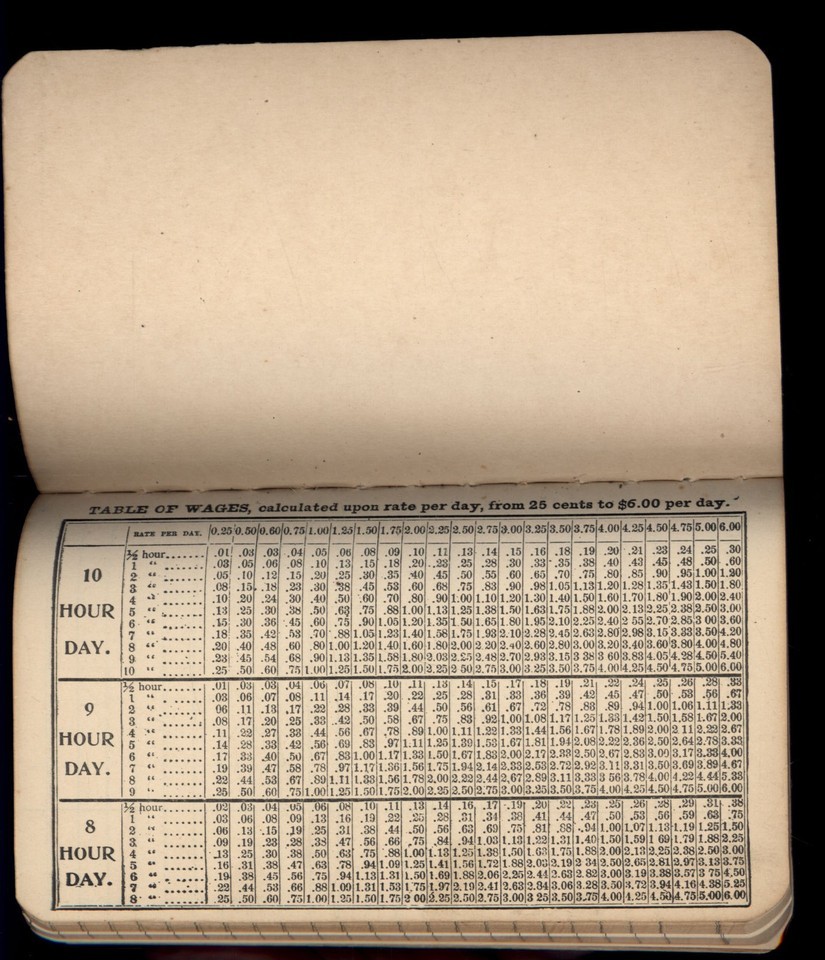 TABLE OF WAGES, calculated upon rate per day, from 25 cents to $6.00 per day.
RATE PER DAY. 0.25 0.50 0.60 0.75 1.00 1.25 1.50 1.75 2.00 2.25 2.50 2.75 3.00 3.25 3.50 3.75 4.00 4.25 4.50 4.75 5.00 6.00
10 HOUR DAY.
½ hour....... .01 .03 .03 .04 .05 .06 .08 .09 .10 .11 .13 .14 .15 .16 .18 .19 .20 .21 .23 .24 .25 .30
1 " ....... .03 .05 .06 .08 .10 .13 .15 .18 .20 .23 .25 .28 .30 .33 .35 .38 .40 .43 .45 .48 .50 .60
2 " ....... .05 .10 .12 .15 .20 .25 .30 .35 .40 .45 .50 .55 .60 .65 .70 .75 .80 .85 .90 .95 1.00 1.20
3 " ....... .08 .15 .18 .23 .30 .38 .45 .53 .60 .68 .75 .83 .90 .98 1.05 1.13 1.20 1.28 1.35 1.43 1.50 1.80
4 " ....... .10 .20 .24 .30 .40 .50 .60 .70 .80 .90 1.00 1.10 1.20 1.30 1.40 1.50 1.60 1.70 1.80 1.90 2.00 2.40
5 " ....... .13 .25 .30 .38 .50 .63 .75 .88 1.00 1.13 1.25 1.38 1.50 1.63 1.75 1.88 2.00 2.13 2.25 2.38 2.50 3.00
6 " ....... .15 .30 .36 .45 .60 .75 .90 1.05 1.20 1.35 1.50 1.65 1.80 1.95 2.10 2.25 2.40 2 55 2.70 2.85 3 00 3.60
7 " ....... .18 .35 .42 .53 .70 .88 1.05 1.23 1.40 1.58 1.75 1.93 2.10 2.28 2.45 2.63 2.80 2.98 3.15 3.33 3.50 4.20
8 " ....... .20 .40 .48 .60 .80 1.00 1.20 1.40 1.60 1.80 2.00 2 20 2.40 2.60 2.80 3.00 3.20 3.40 3.60 3.80 4.00 4.80
9 " ....... .23 .45 .54 .68 .90 1.13 1.35 1.58 1.80 2.03 2.25 2.48 2.70 2.93 3.15 3 38 3 60 3.83 4.05 4.28 4.50 5.40
10 " ....... .25 .50 .60 .75 1.00 1.25 1.50 1.75 2.00 2.25 2 50 2.75 3.00 3.25 3.50 3.75 4.00 4.25 4.50 4.75 5.00 6.00
9 HOUR DAY.
½ hour....... .01 .03 .03 .04 .06 .07 .08 .10 .11 .13 .14 .15 .17 .18 .19 .21 .22 .24 .25 .26 .28 .33
1 " ....... .03 .06 .07 .08 .11 .14 .17 .20 .22 .25 .28 .31 .33 .36 .39 .42 .45 .47 .50 .53 .56 .67
2 " ....... 06 .11 .13 .17 .22 .28 .33 .39 .44 .50 .56 .61 .67 .72 .78 .83 .89 .94 1.00 1.06 1.11 1.33
3 " ....... .08 .17 .20 .25 .33 .42 .50 .58 .67 .75 .83 .92 1.00 1.08 1.17 1.25 1.33 1.42 1.50 1.58 1.67 2.00
4 " ....... .11 .22 .27 .33 .44 .56 .67 .78 .89 1.00 1.11 1.22 1.33 1.44 1.56 1.67 1.78 1.89 2.00 2 11 2.22 2.67
5 " ....... .14 .28 .33 .42 .56 .69 .83 .97 1.11 1.25 1.39 1.53 1.67 1.81 1.94 2.08 2.22 2.36 2.50 2.64 2.78 3.33
6 " ....... .17 .33 .40 .50 .67 .83 1.00 1.17 1.33 1.50 1.67 1.83 2.00 2.17 2.33 2.50 2.67 2.83 3.00 3.17 3.33 4.00
7 " ....... .19 .39 .47 .58 .78 .97 1.17 1.36 1.56 1.75 1.94 2.14 2.33 2.53 2.72 2.92 3.11 3.31 3.50 3.69 3.89 4.67
8 " ....... .22 .44 .53 .67 .89 1.11 1.33 1.56 1.78 2.00 2.22 2.44 2.67 2.89 3.11 3.33 3 56 3.78 4.00 4.22 4.44 5.33
9 " ....... .25 .50 .60 .75 1.00 1.25 1.50 1.75 2.00 2.25 2.50 2.75 3.00 3.25 3.50 3.75 4.00 4.25 4.50 4.75 5.00 6.00
8 HOUR DAY.
½ hour....... .02 .03 .04 .05 .06 .08 .10 .11 .13 .14 .16 .17 .19 .20 .22 .23 .25 .26 .28 .29 .31 .38
1 " ....... .03 .06 .08 .09 .13 .16 .19 .22 .25 .28 .31 .34 .38 .41 .44 .47 .50 .53 .56 .59 .63 .75
2 " ....... .06 .13 .15 .19 .25 .31 .38 .44 .50 .56 .63 .69 .75 .81 .88 .94 1.00 1.07 1.13 1.19 1.25 1.50
3 " ....... .09 .19 .23 .28 .38 .47 .56 .66 .75 .84 .94 1.03 1.13 1.22 1.31 1.40 1.50 1.59 1 69 1.79 1.88 2.25
4 " ....... .13 .25 .30 .38 .50 .63 .75 .88 1.00 1.13 1.25 1.38 1.50 1.63 1.75 1.88 2.00 2.13 2.25 2.38 2.50 3.00
5 " ....... .16 .31 .38 .47 .63 .78 .94 1.09 1.25 1.41 1.56 1.72 1.88 2.03 2.19 2 34 2.50 2.65 2.81 2.97 3.13 3.75
6 " ....... .19 .38 .45 .56 .75 .94 1.13 1.31 1.50 1.69 1.88 2.06 2.25 2.44 2.63 2.82 3.00 3.19 3.38 3.57 3 75 4.50
7 " ....... .22 .44 .53 .66 .88 1.09 1.31 1.53 1.75 1.97 2.19 2.41 2.63 2.84 3.06 3.28 3.50 3.72 3.94 4.16 4.38 5.25
8 " ....... .25 .50 .60 .75 1.00 1.25 1.50 1.75 2 00 2.25 2.50 2.75 3.00 3 25 3.50 3.75 4.00 4.25 4.50 4.75 5.00 6.00